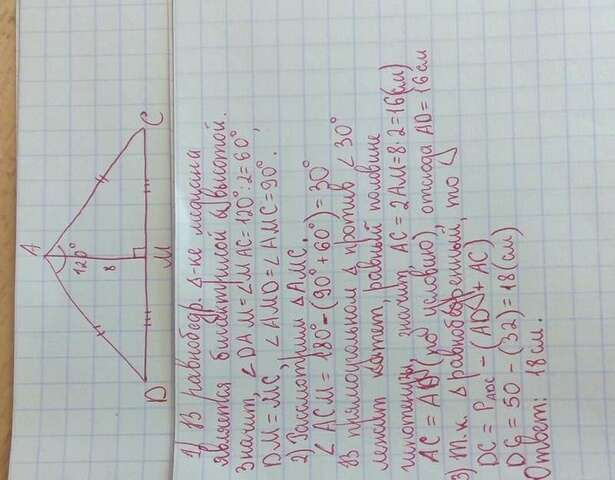 A
120°
8
D
M
C
1) В равнобедр. Δ-ке медиана
является биссектрисой и высотой.
Значит, ∠DAM = ∠MAC = 120° : 2 = 60°
DM = MC, ∠AMD = ∠AMC = 90°.
2) Рассмотрим ΔAMC.
∠ACM = 180° - (90° + 60°) = 30°
В прямоугольном Δ против ∠30°
лежит катет, равный половине
гипотенузы, значит AC = 2AM = 8·2 = 16 (см)
AC = AD (по условию), отсюда AD = 16 см
3) т.к. Δ равнобедренный, то
DC = P ADC - (AD + AC)
DC = 50 - (32) = 18 (см)
Ответ: 18 см.